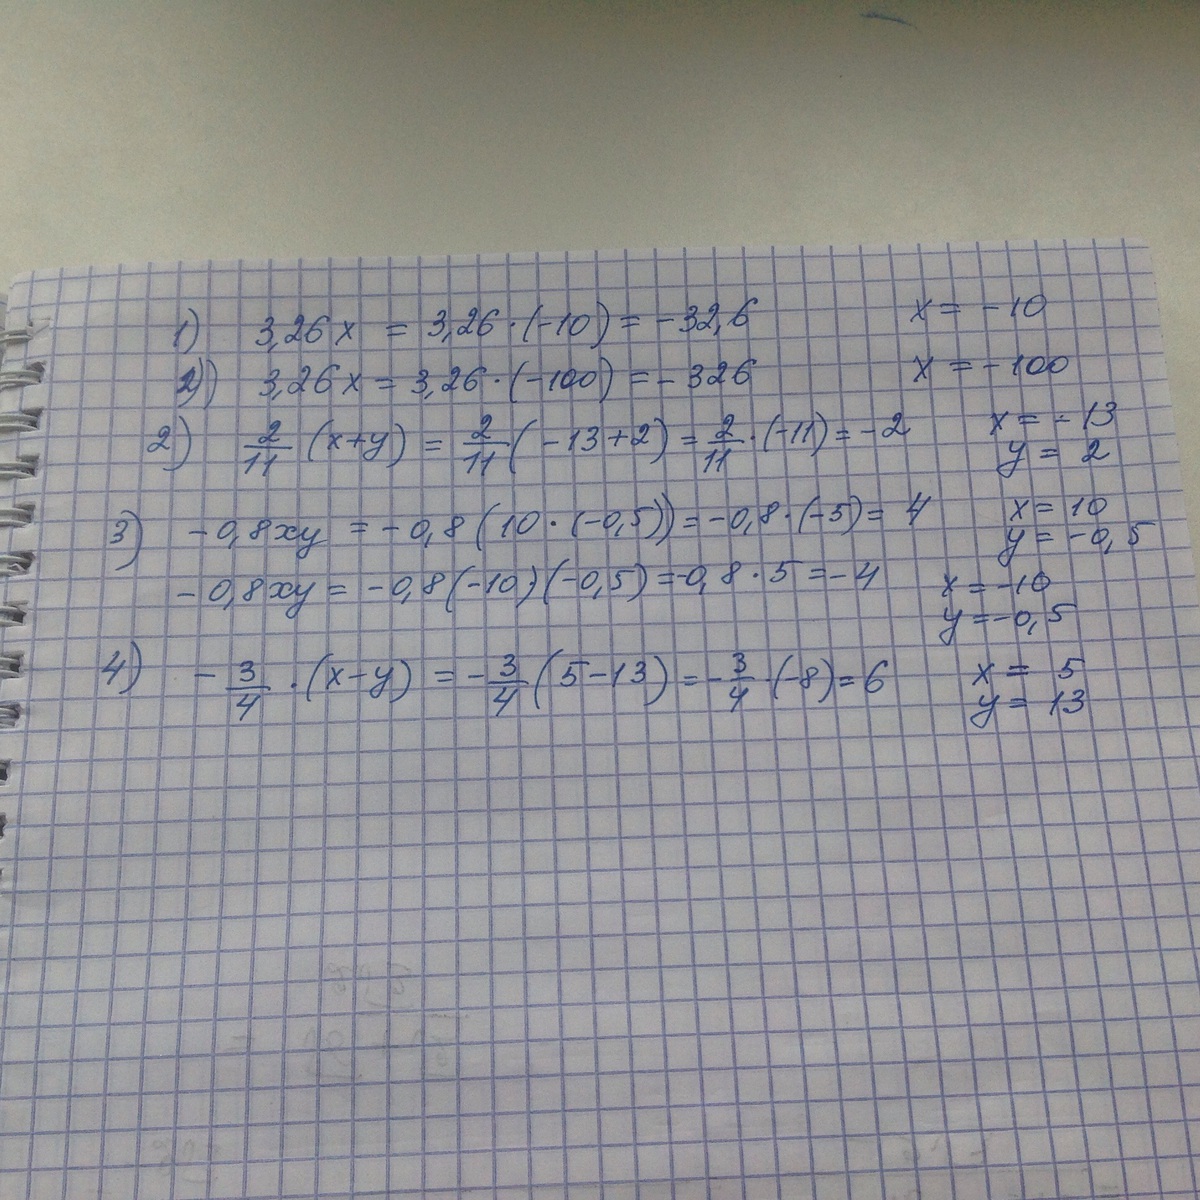 1) 3,26x = 3,26·(-10) = -32,6 x = -10
2) 3,26x = 3,26·(-100) = -326 x = -100
2) 2/11 (x+y) = 2/11 (-13+2) = 2/11·(-11) = -2 x = -13
y = 2
3) -0,8xy = -0,8(10·(-0,5)) = -0,8·(-5) = 4 x = 10
y = -0,5
-0,8xy = -0,8(-10)(-0,5) = -0,8·5 = -4 x = -10
y = -0,5
4) -3/4·(x-y) = -3/4(5-13) = -3/4·(-8) = 6 x = 5
y = 13